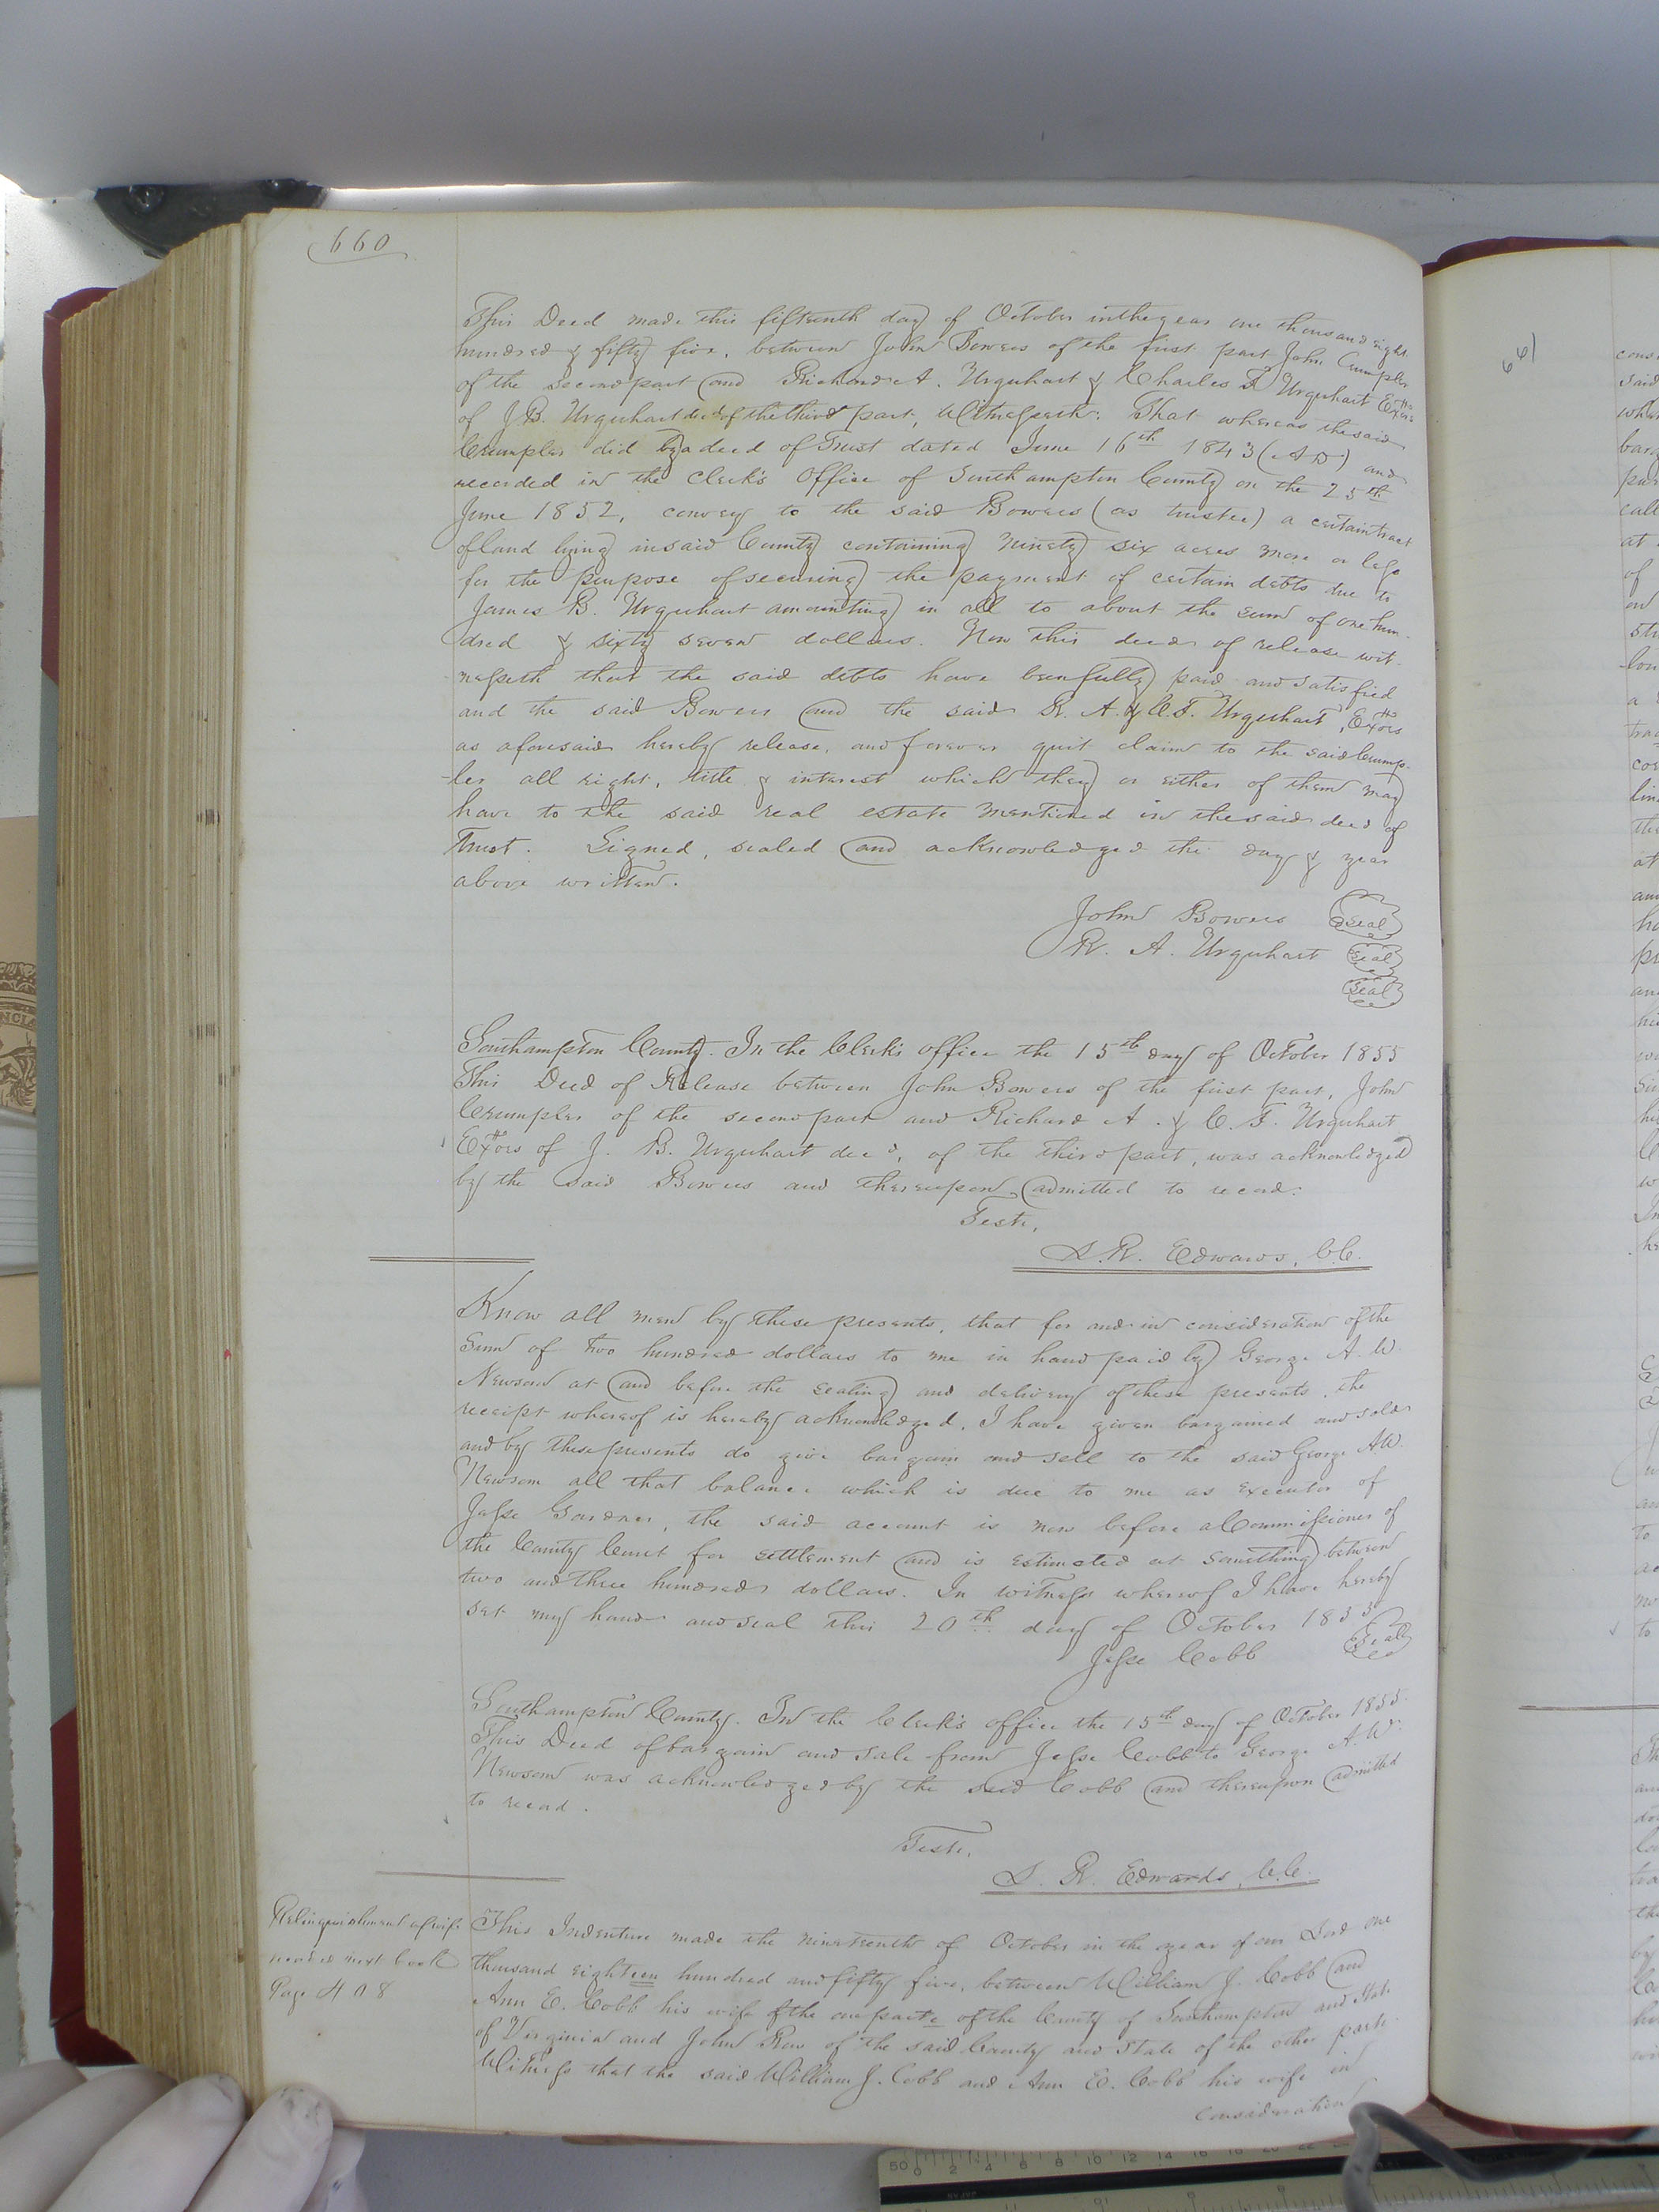 660
This Deed made this fifteenth day of October in the year one thousand eight
hundred & fifty five, between John Bowers of the first part John Crumpler
of the second part and Richard A. Urquhart & Charles F. Urquhart Exors
of J. B. Urquhart decd of the third part, Witnesseth: That whereas the said
Crumpler did by a deed of Trust dated June 16th 1843 (AD) and
recorded in the Clerk's Office of Southampton County on the 25th
June 1852, convey to the said Bowers (as trustee) a certain tract
of land lying in said County containing ninety six acres more or less
for the purpose of securing the payment of certain debts due to
James B. Urquhart amounting in all to about the sum of one hun-
dred & sixty seven dollars. Now this deed of release wit-
nesseth that the said debts have been fully paid and satisfied
and the said Bowers and the said R. A. & C. F. Urquhart, Exors
as aforesaid hereby release, and forever quit claim to the said Crump-
ler all right, title & interest which they or either of them may
have to the said real estate mentioned in the said deed of
Trust. Signed, sealed and acknowledged the day & year
above written.
John Bowers Seal
R. A. Urquhart Seal
Seal
Southampton County. In the Clerk's office the 15th day of October 1855
This Deed of Release between John Bowers of the first part, John
Crumpler of the second part and Richard A. & C. F. Urquhart
Exors of J. B. Urquhart decd, of the third part, was acknowledged
by the said Bowers and thereupon admitted to record:
Teste,
L. R. Edwards, C.C.
Know all men by these presents, that for and in consideration of the
Sum of two hundred dollars to me in hand paid by George A. W.
Newsom at and before the sealing and delivery of these presents, the
receipt whereof is hereby acknowledged, I have given bargained and sold
and by these presents do give bargain and sell to the said George A W.
Newsom all that balance which is due to me as executor of
Jesse Gardner, the said account is now before a Commissioner of
the County Court for settlement and is estimated at something between
two and three hundred dollars. In witness whereof I have hereby
set my hand and seal this 20th day of October 1855
Jesse Cobb Seal
Southampton County. In the Clerk's office the 15th day of October 1855.
This Deed of bargain and sale from Jesse Cobb to George A. W.
Newsom was acknowledged by the said Cobb and thereupon admitted
to record.
Teste,
L. R. Edwards, C.C.
Relinquishment of wife
next book
Page 408
This Indenture made the nineteenth of October in the year of our Lord one
thousand eighteen hundred and fifty five, between William J. Cobb and
Ann E. Cobb his wife of the one parte of the County of Southampton and State
of Virginia and John Rew of the said County and State of the other part.
Witness that the said William J. Cobb and Ann E. Cobb his wife in
consideration
661